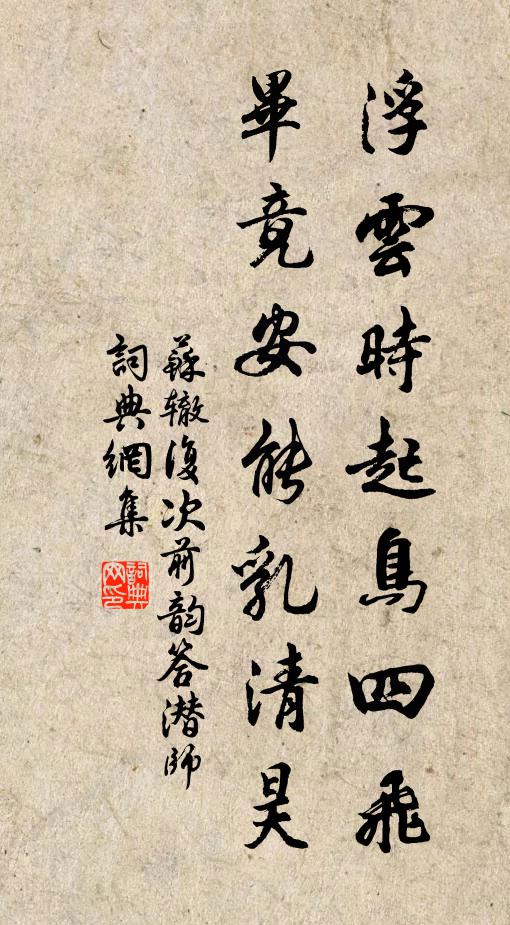 浮雲時起鳥四飛
畢竟安能乳清昊
蘇轍復次前韵答潜師
詞典網集
詞典网印